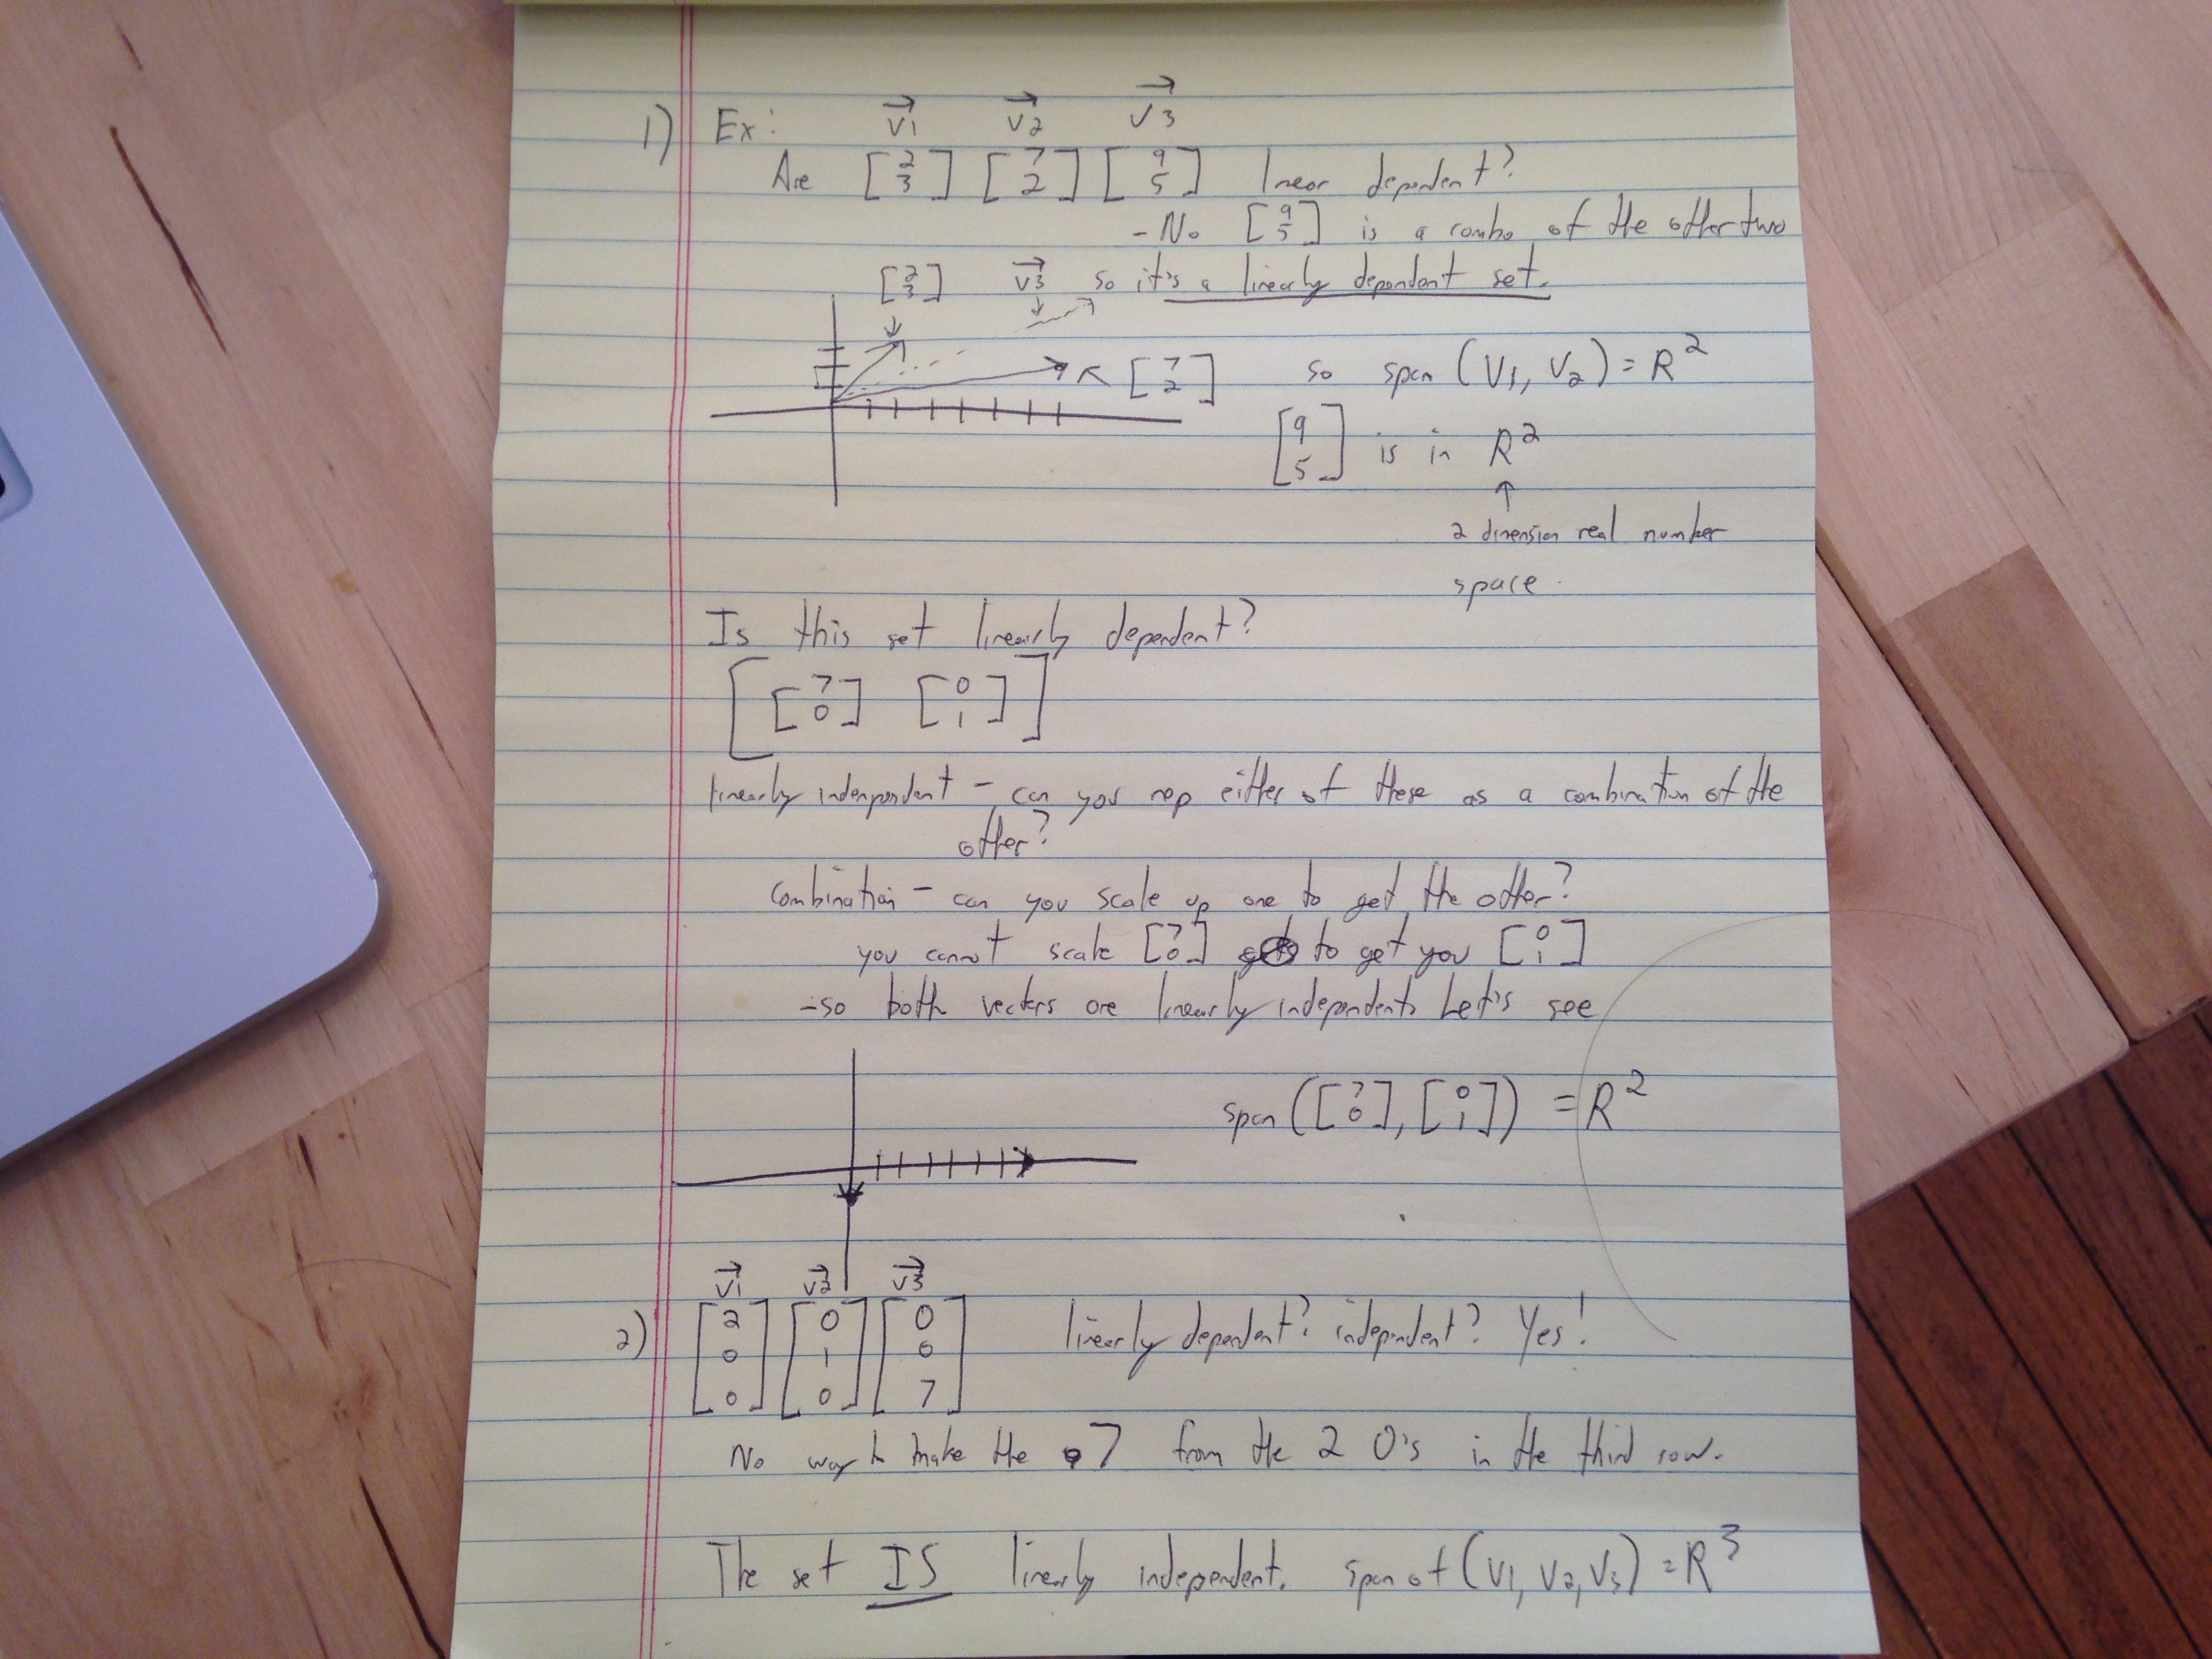 v1 v2 v3
1) Ex: Are [2 3] [7 2] [9 5] linear dependent?
- No [9 5] is a combo of the other two
[2 3] v3 so it's a linearly dependent set.
[7 2] so span (v1, v2) = R²
[9 5] is in R²
↑
2 dimension real number
space.
Is this set linearly dependent?
[[7 0] [0 1]]
linearly independent - can you rep either of these as a combination of the
other?
Combination - can you scale up one to get the other?
you cannot scale [7 0] to get you [0 1]
- so both vectors are linearly independents Let's see
span ([7 0], [0 1]) = R²
v1 v2 v3
2) [2 0 0] [0 1 0] [0 0 7] linearly dependent? independent? Yes!
No way to make the 7 from the 2 0's in the third row.
The set IS linearly independent. span of (v1, v2, v3) = R³